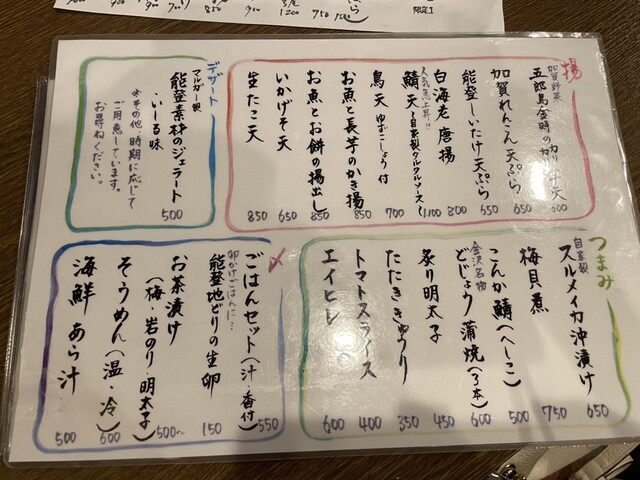 揚
加賀野菜
五郎島金時のカリカリ天 600
加賀れんこん天ぷら 650
能登しいたけ天ぷら 650
白海老 唐揚 800
人気急上昇!!
鯖天 〜自家製タルタルソース〜 1,100
鳥天 ゆずこしょう付 700
お魚と長芋のかき揚 850
お魚とお餅の揚出し 850
いかげそ天 650
生たこ天 850
デザート
マルガー製
能登素材のジェラート
・いしる味 500
※その他、時期に応じて
ご用意しています。
お尋ねください。
つまみ
自家製
スルメイカ沖漬け 650
梅貝煮 750
こんか鯖(へしこ) 500
金沢名物
どじょう蒲焼(3本) 600
炙り明太子 450
たたききゅうり 350
トマトスライス 400
エイヒレ 600
〆
ごはんセット(汁・香付) 550
卵かけごはんに…
能登地どりの生卵 150
お茶漬け
(梅・岩のり・明太子) 500〜
そうめん(温・冷) 600
海鮮 あら汁 500